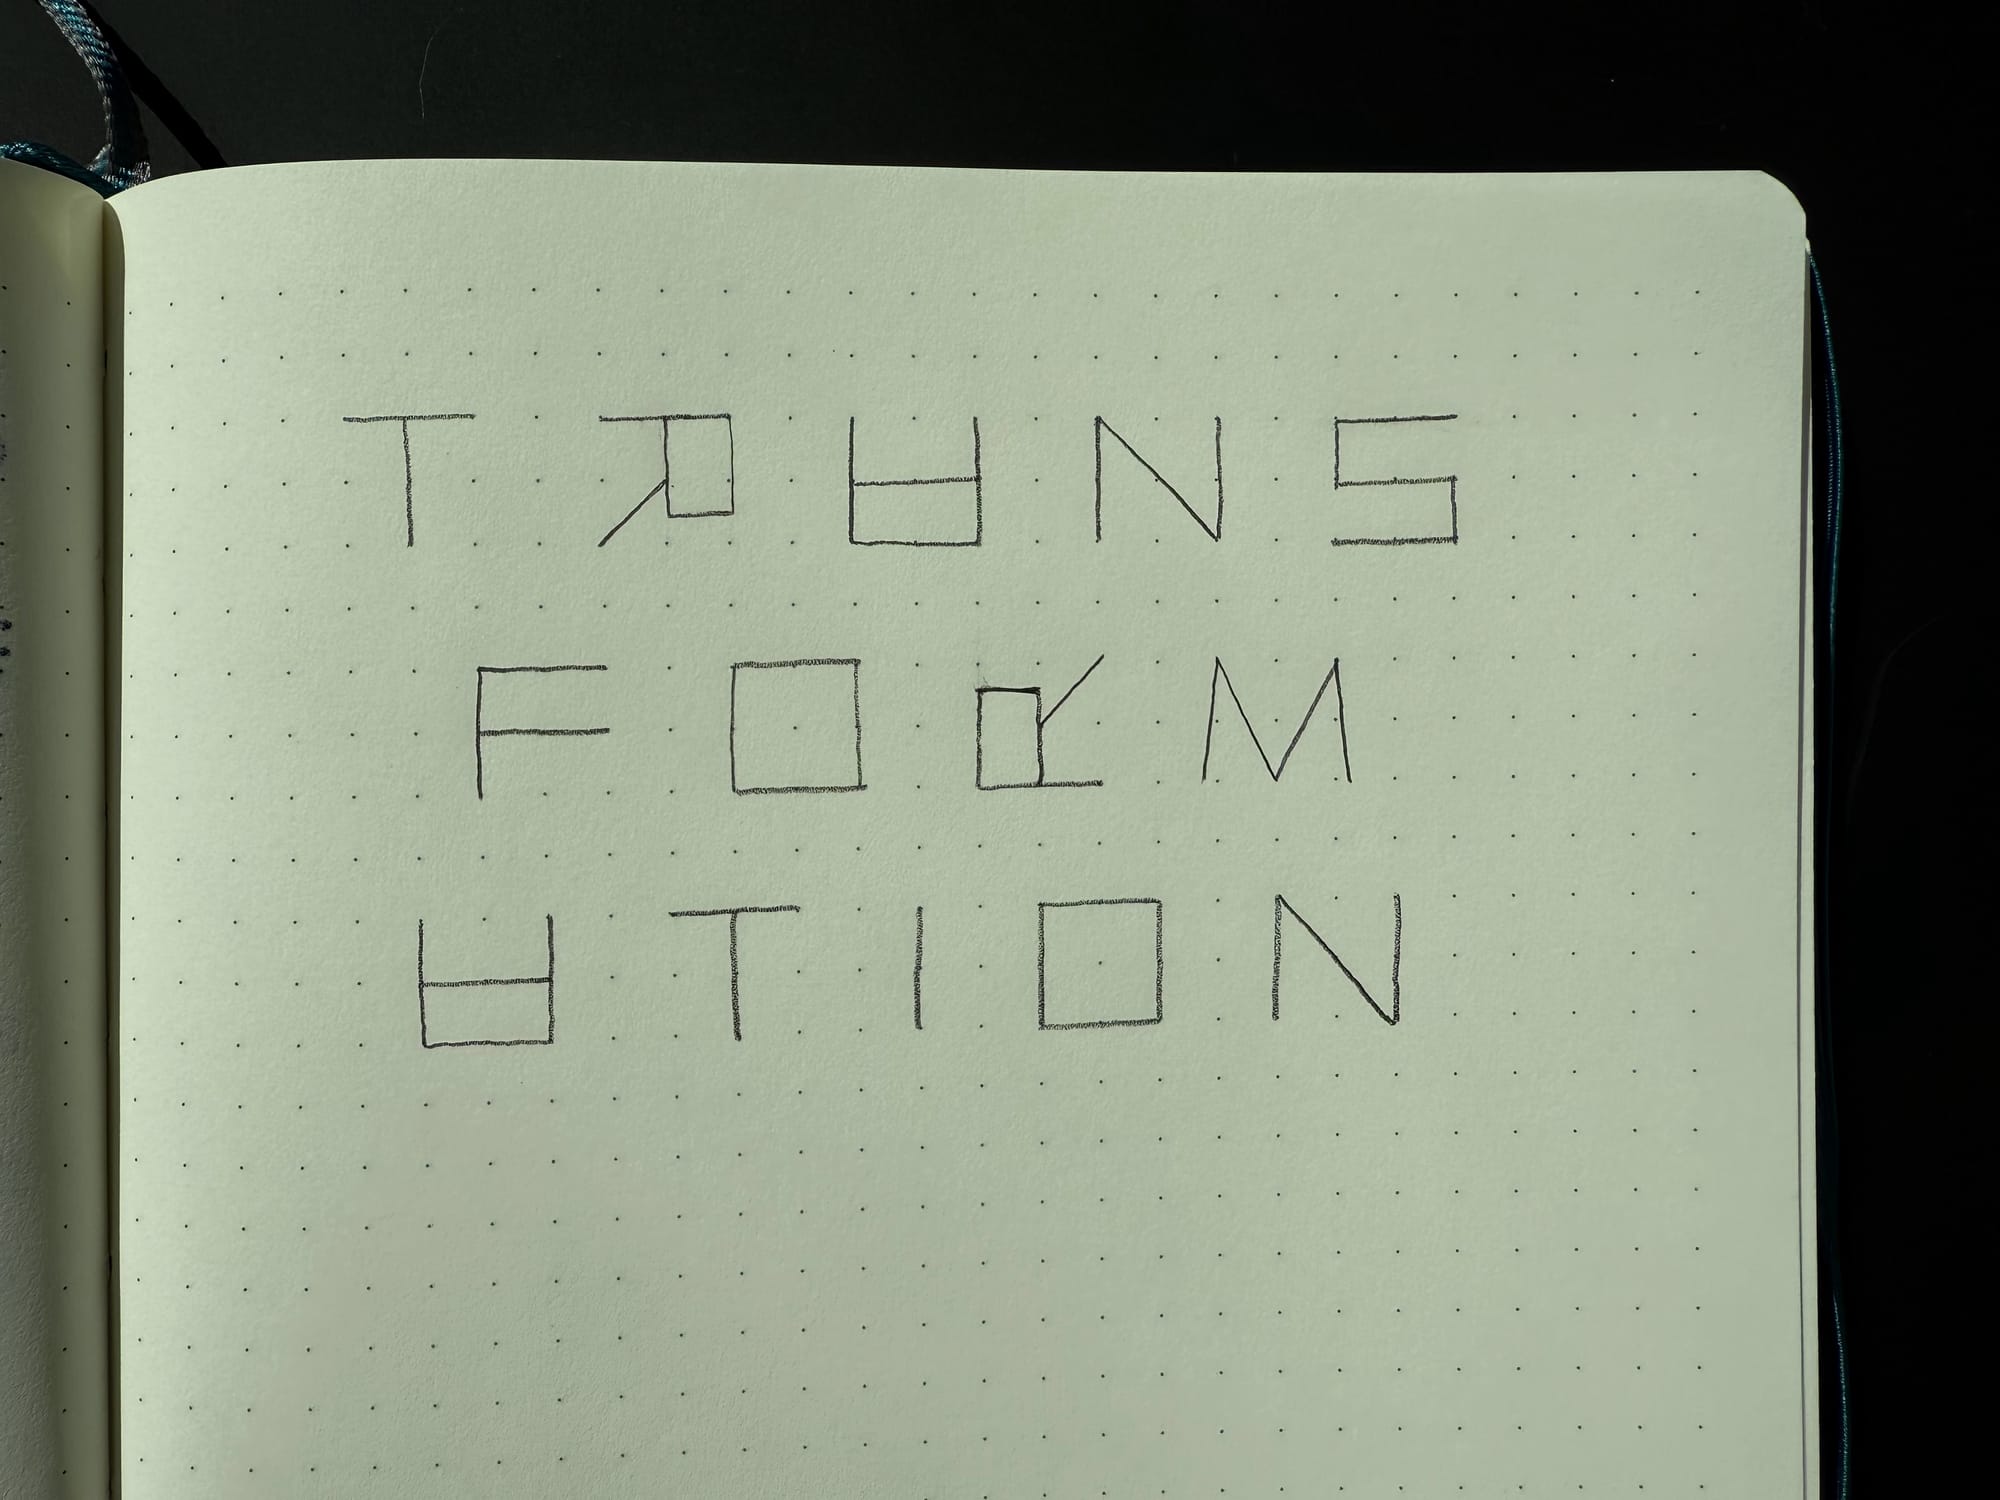 TRANS
FORM
ATION